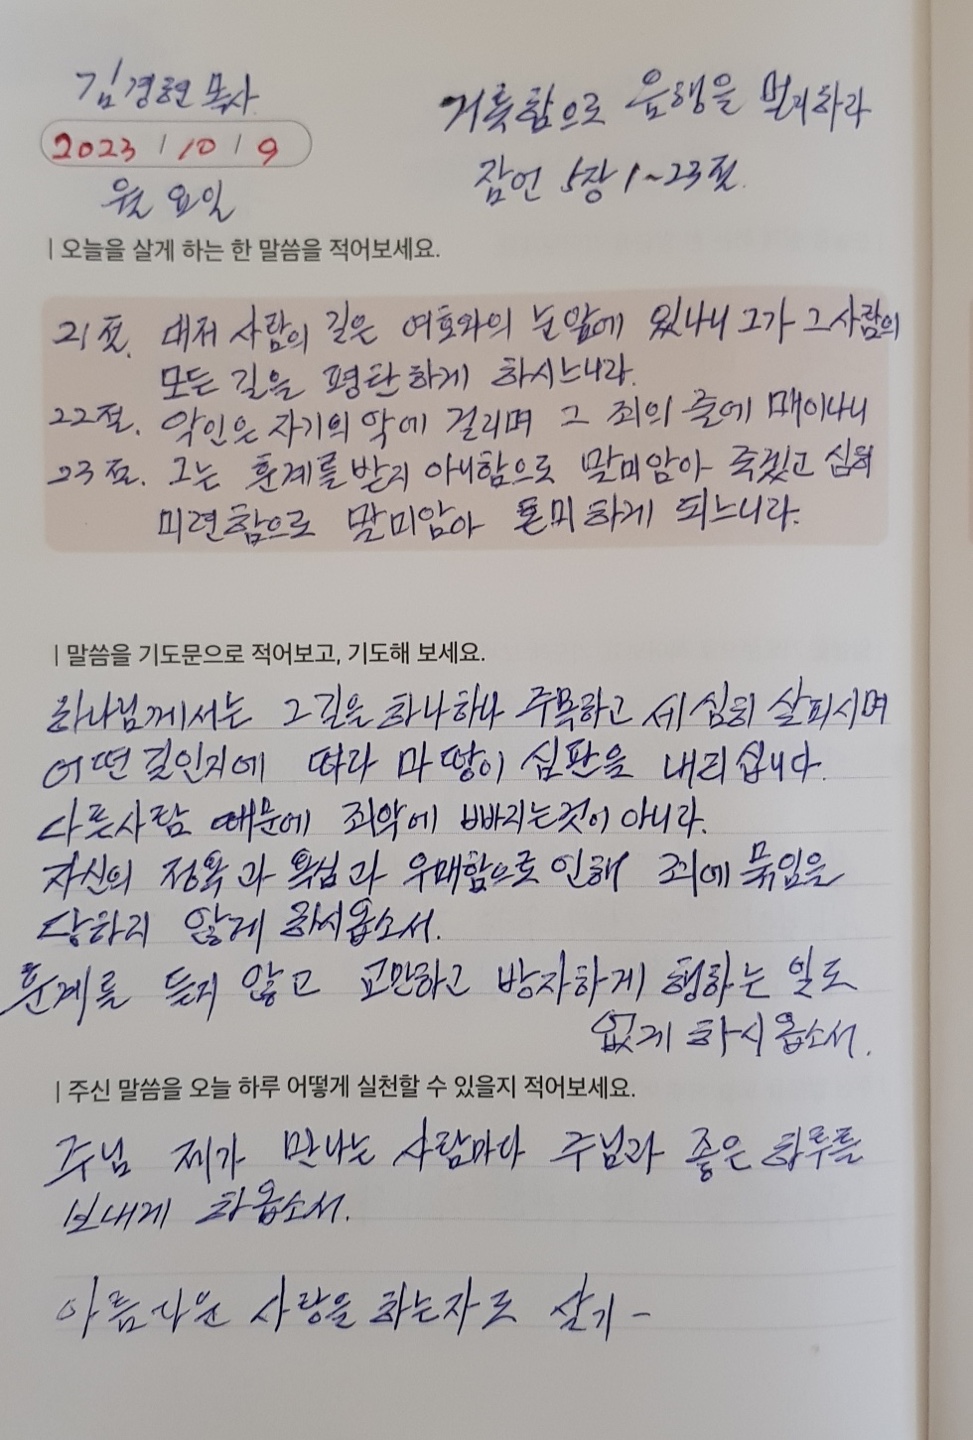 김경현 목사
거룩함으로 음행을 멀리하라
2023 / 10 / 9
잠언 5장 1~23절.
월요일
| 오늘을 살게 하는 한 말씀을 적어보세요.
21절. 대저 사람의 길은 여호와의 눈앞에 있나니 그가 그 사람의
모든 길을 평탄하게 하시느니라.
22절. 악인은 자기의 악에 걸리며 그 죄의 줄에 매이나니
23절. 그는 훈계를 받지 아니함으로 말미암아 죽겠고 심히
미련함으로 말미암아 혼미하게 되느니라.
| 말씀을 기도문으로 적어보고, 기도해 보세요.
하나님께서는 그 길을 하나하나 주목하고 세심히 살피시며
어떤 길인지에 따라 마땅이 심판을 내리십니다.
다른사람 때문에 죄악에 빠지는것이 아니라.
자신의 정욕과 욕심과 우매함으로 인해 죄에 묶임을
당하지 않게 하시옵소서.
훈계를 듣지 않고 교만하고 방자하게 행하는 일도
없게 하시옵소서.
| 주신 말씀을 오늘 하루 어떻게 실천할 수 있을지 적어보세요.
주님 제가 만나는 사람마다 주님과 좋은 하루를
보내게 하옵소서.
아름다운 사랑을 하는자로 살기 -